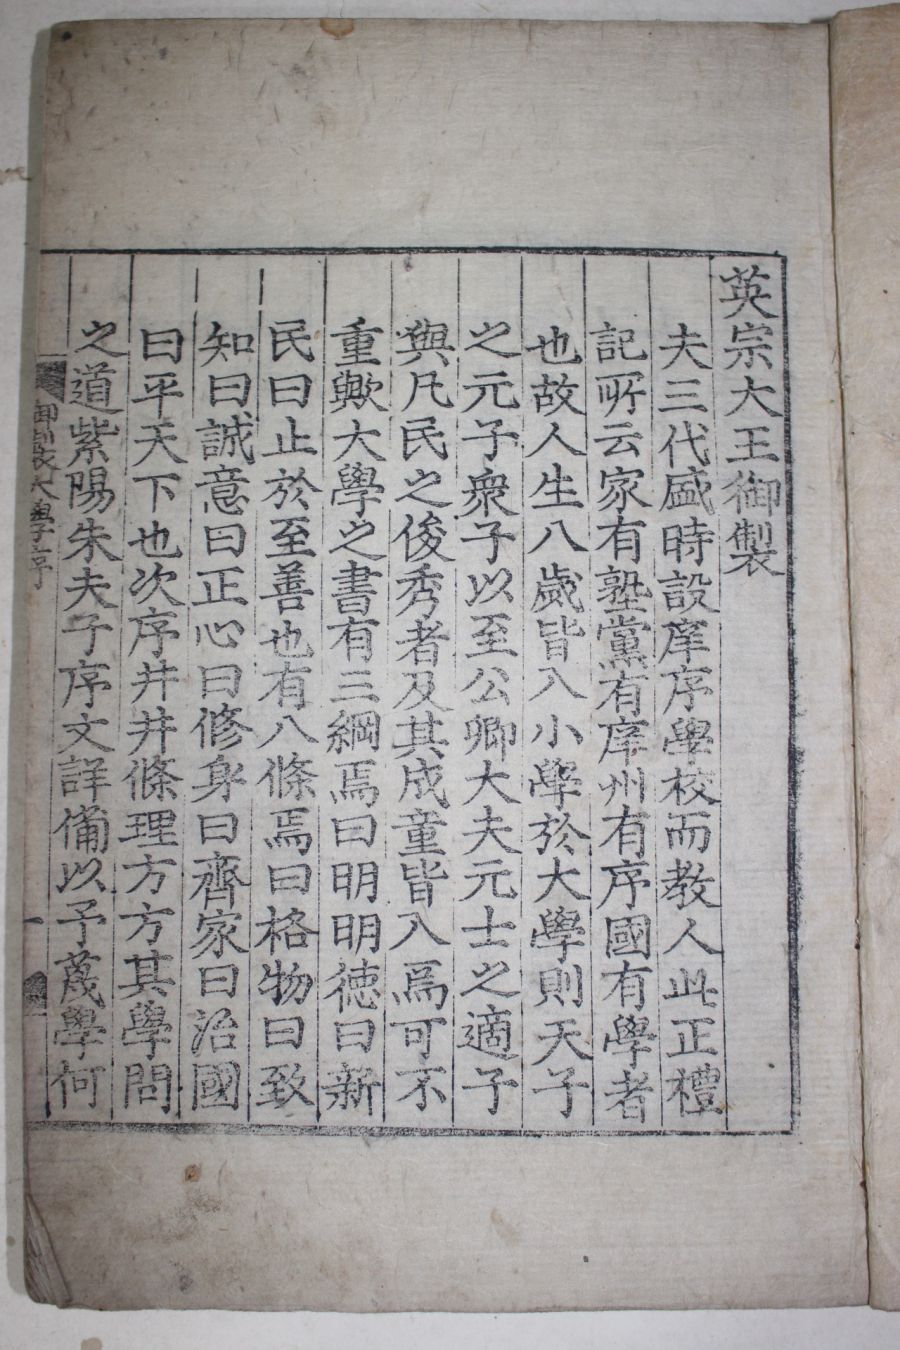 英宗大王御製
夫三代盛時設庠序學校而教人此正禮
記所云家有塾黨有庠州有序國有學者
也故人生八歲皆入小學於大學則天子
之元子衆子以至公卿大夫元士之適子
與凡民之俊秀者及其成童皆入焉可不
重歟大學之書有三綱焉曰明明德曰新
民曰止於至善也有八條焉曰格物曰致
知曰誠意曰正心曰修身曰齊家曰治國
曰平天下也次序井井條理方方其學問
之道紫陽朱夫子序文詳備以予蔑學何
御製大學序
一